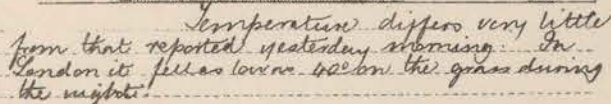 Temperature differs very little
from that reported yesterday morning. In
London it fell as low as 40° on the grass during
the night.